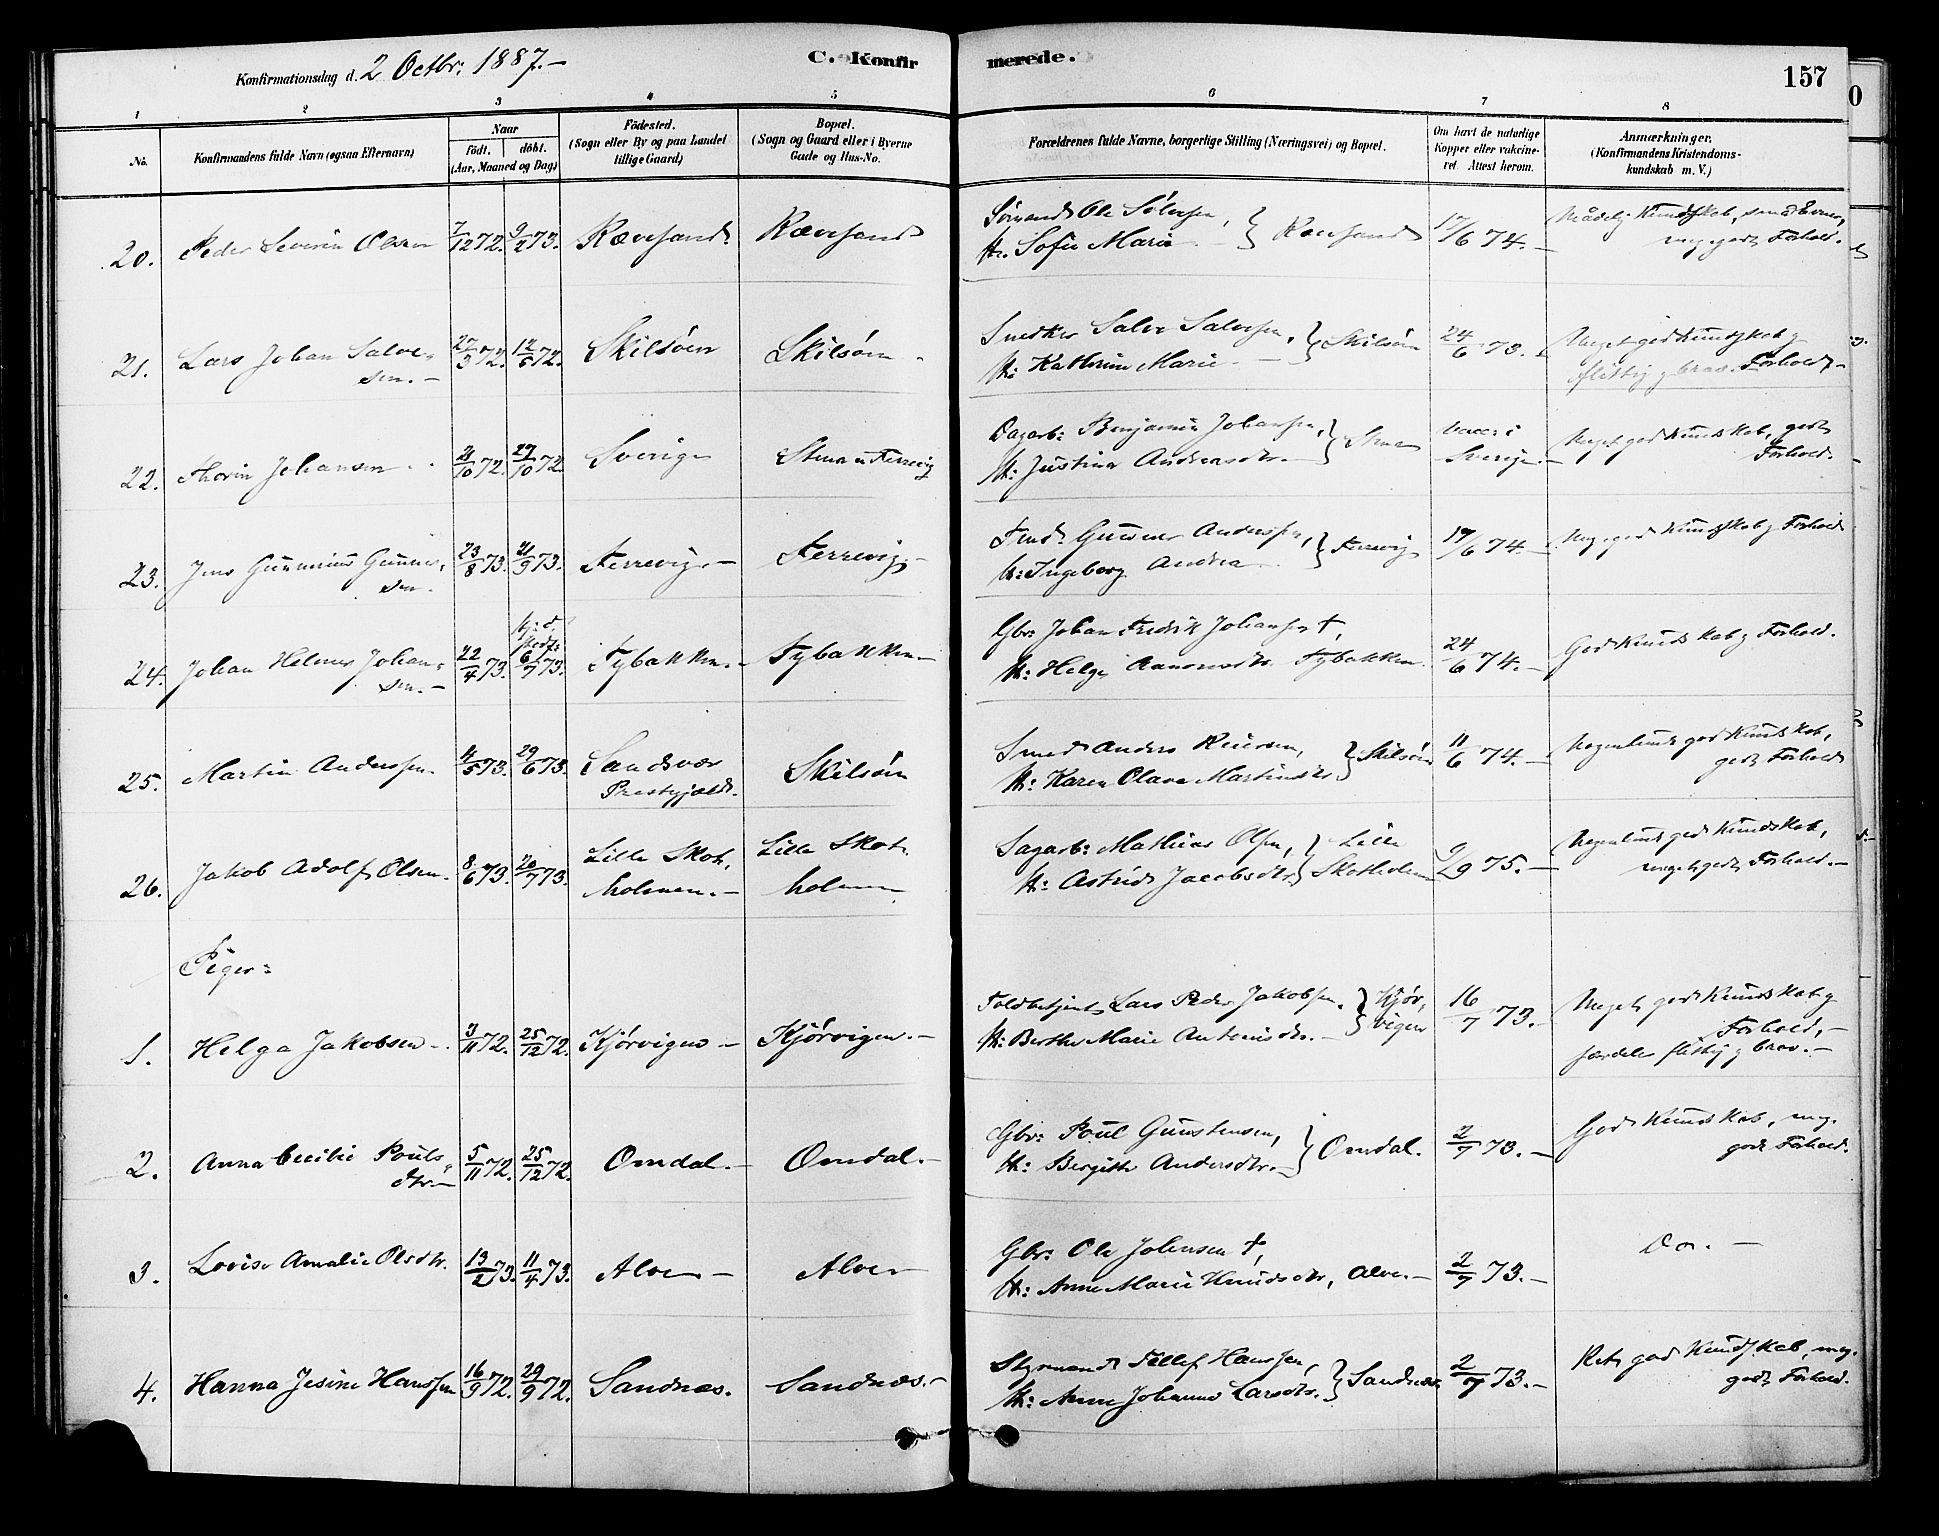 Konfirmationsdag d. 2 Octbr. 1887.-
C. Konfirmerede.
157
1 2 3 4 5 6 7 8
No.
Konfirmandens fulde Navn (ogsaa Efternavn)
Naar
födt. döbt.
(Aar, Maaned og Dag)
Födested.
(Sogn eller By og paa Landet
tillige Gaard)
Bopæl.
(Sogn og Gaard eller i Byerne
Gade og Hus-No.
Forældrenes fulde Navne, borgerlige Stilling (Næringsvei) og Bopæl.
Om havt de naturlige
Kopper eller vakcine-
ret. Attest herom.
Anmærkninger.
(Konfirmandens Kristendoms-
kundskab m. V.)
20. Peder Severin Olsen 7/12 72. 9/2 73. Rævesand Rævesand
Sömand Ole Sölvesen, H: Sofie Marie } Rævesand 17/6 74.-
Mådelig Kundskab, små Evner,
meg. godt Forhold.
21. Lars Johan Salve-
sen.- 27/3 72. 12/5 72. Skilsöen Skilsöen
Snedker Salve Salvesen, H: Kathrine Marie } Skilsöen 24/6 73.-
Meget god Kundskab og
flittig og brav. Forhold.-
22. Thorin Johansen 21/10 72. 27/10 72 Sverige Stena u Færevig
Dagarb: Benjamin Johansen, H: Justina Andreasdtr.- } Stena
Vacc: i
Sverige.-
Meget god Kundskab, godt
Forhold.
23. Jens Gunnerius Gunner-
sen. 23/8 73. 21/9 73. Færevig.- Færevig.-
Gunner Andersen, H: Ingeborg Andrea } Færevig 17/6 74.-
Meget god Kundskab og Forhold
24. Johan Helmer Johan-
sen.- 22/4 73. Hj: d. 6/7 73. Tybakken.- Tybakken.-
Gbr: Johan Fredrik Johansen †,
H: Helge Aanonsdtr. Tybakken. 24/6 74.-
God Kundskab og Forhold.
25. Martin Anderssen. 4/5 73. 29/6 73. Sandsvær
Prestegjæld. Skilsöen
Smed Anders
H: Karen Olava Martinsdtr. } Skilsöen 11/6 74.-
Nogenlunde god Kundskab,
godt Forhold
26. Jakob Adolf Olsen. 8/6 73. 20/7 73. Lille Skot-
holmen.- Lille Skot-
holmen
Sagarb: Mathias Olsen, H: Astrid Jacobsdtr } Lille
Skotholmen 9/29 75.-
Nogenlunde god Kundskab,
meget godt Forhold.-
Piger:
1. Helga Jakobsen.- 3/11 72. 25/12 72. Kjörvigen- Kjörvigen.-
Toldbetjent Lars Peder Jakobsen. H: Berthe Marie Antonisdtr.- } Kjör-
vigen 16/7 73.-
Meget god Kundskab og
Forhold,-
særdeles flittig og brav.-
2. Anna Cecilie Pouls-
dtr.- 5/11 72. 25/12 72. Omdal.- Omdal.-
Gbr: Poul Gunstensen, H: Bergithe Andersdtr.- } Omdal. 2/7 73.-
God Kundskab, meg.
godt Forhold.
3. Lovise Amalie Olsdtr. 13/2 73. 11/4 73. Alve- Alve-
Gbr: Ole Johnsen †,
H: Anne Marie Knudsdtr, Alve.- 2/7 73.-
Do.-
4. Hanna Jesine Hanssen 16/9 72. 29/9 72. Sandnæs. Sandnæs.-
Styrmand Tellef Hanssen, H: Anne Johanne Larsdtr. } Sandnæs. 2/7 73.-
Ret god Kundskab, meg.
godt Forhold.